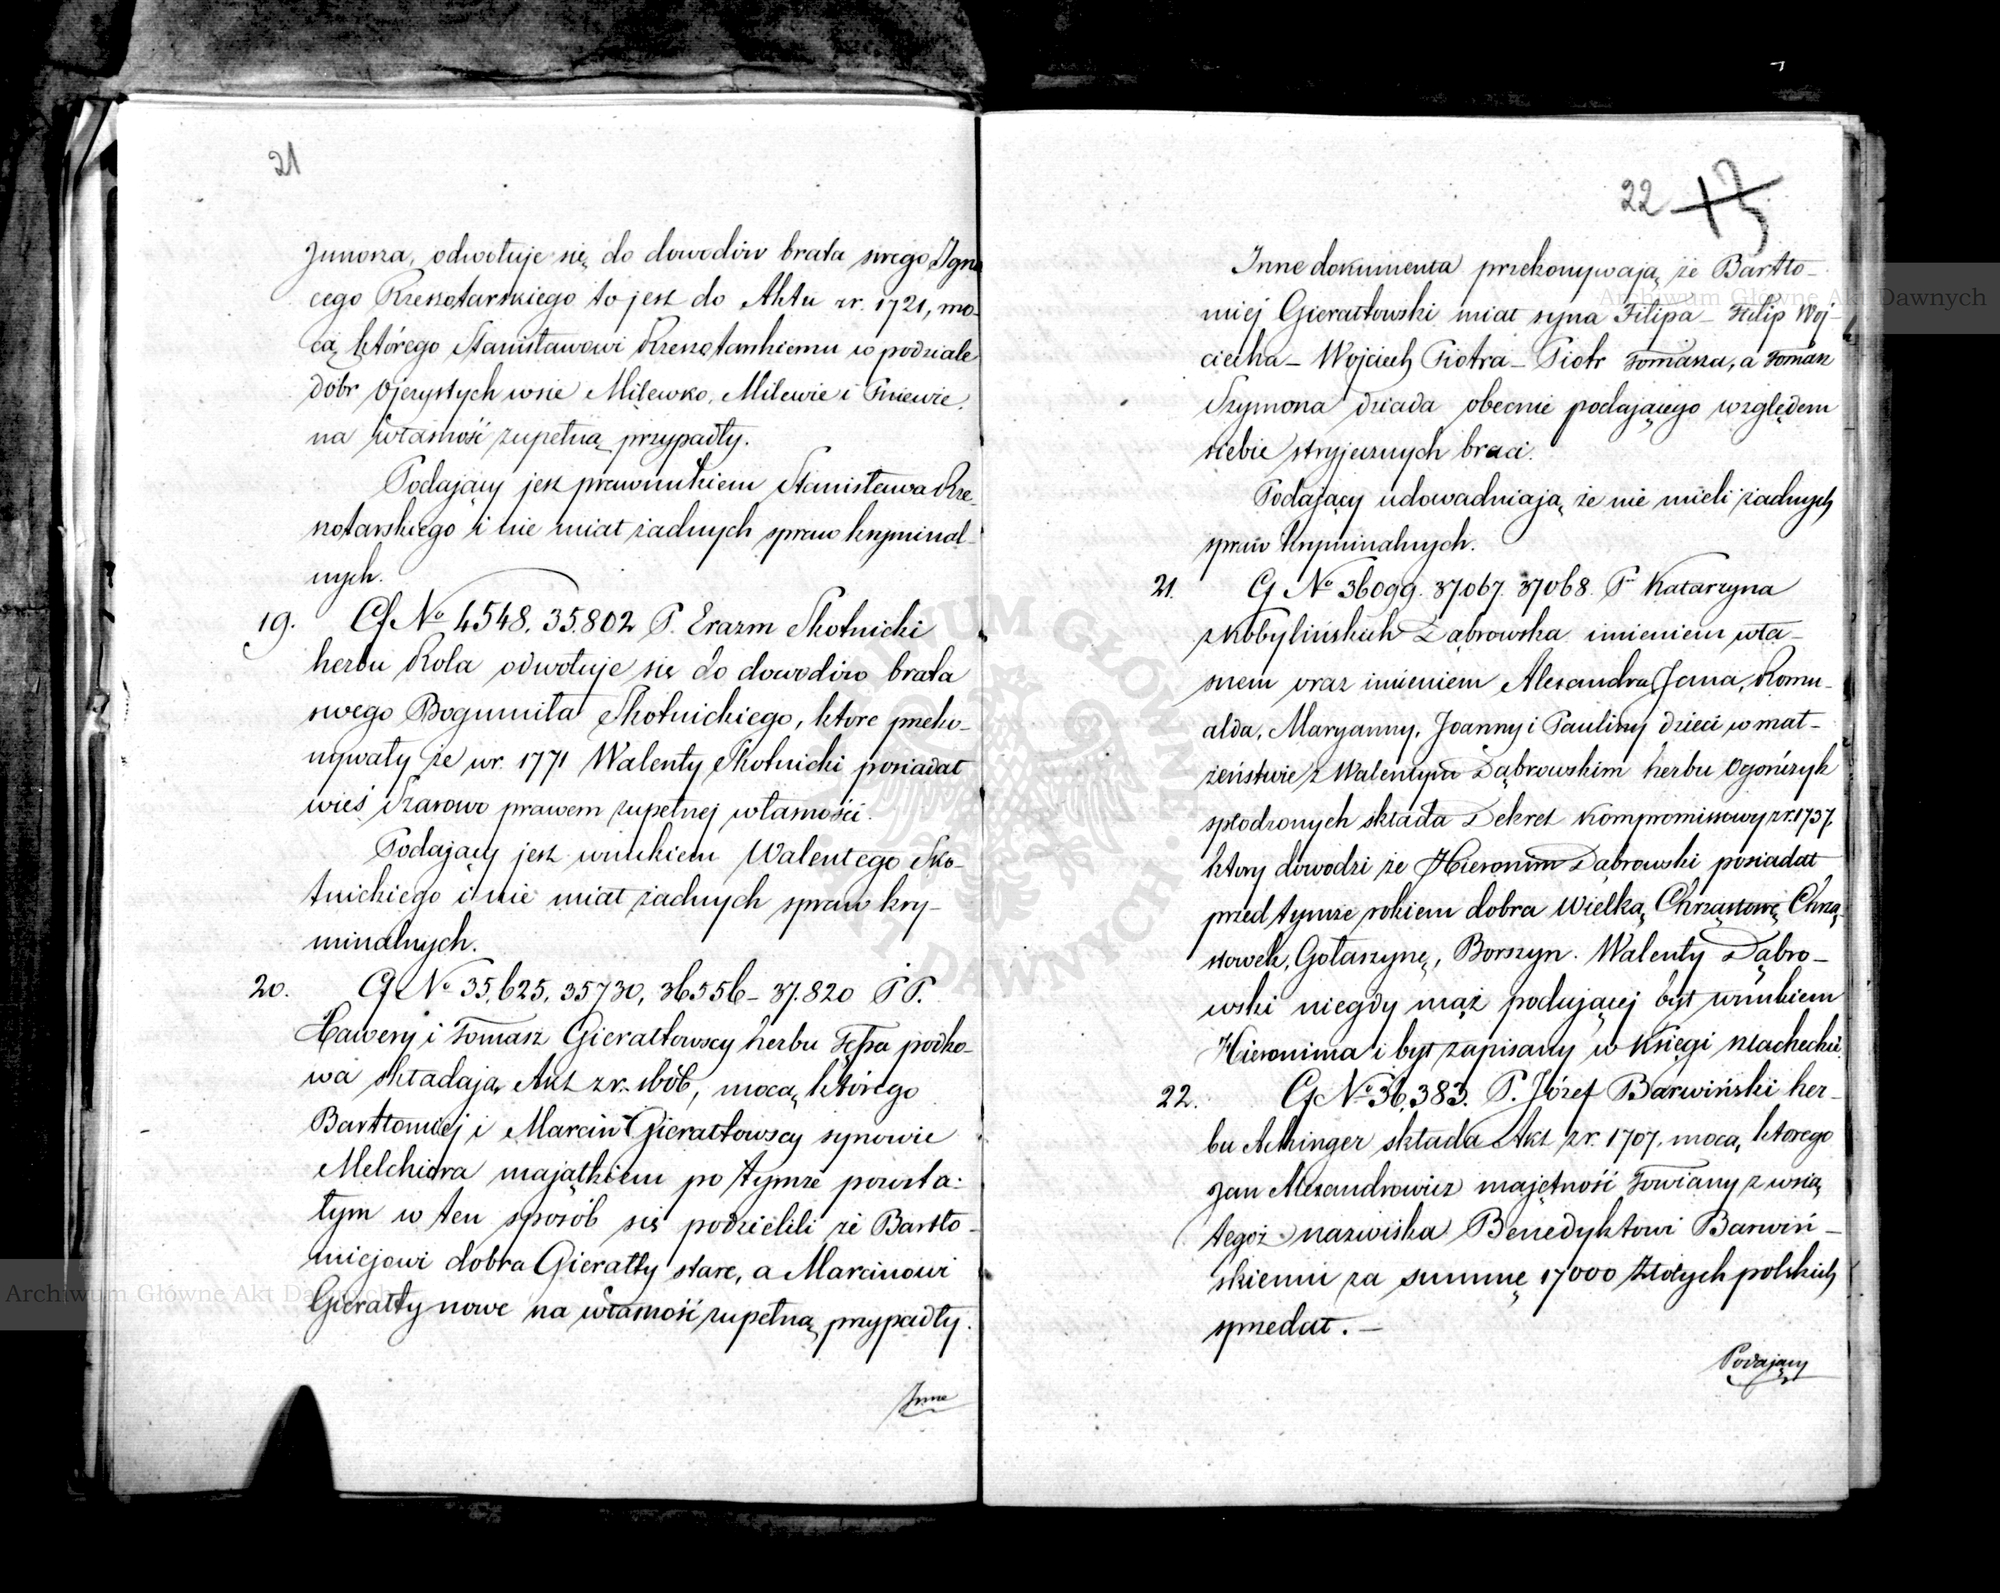 21
Junosza, odwołuje się do dowodów brata swego Igna
cego Rzeszotarskiego to jest do Aktu zr. 1721, mo-
cą którego Stanisławowi Rzeszotarskiemu w podziale
dóbr Ojczystych wsie Milewko, Milewie i Pniewie,
na własność zupełną przypadły.
Podający jest prawnukiem Stanisława Rze-
szotarskiego i nie miał żadnych spraw kryminal-
nych.
19. Cf No 4548. 35.802 P. Erazm Skotnicki
herbu Rola odwołuje się do dowodów brata
swego Bogumiła Skotnickiego, które przeko-
nywały że wr. 1771 Walenty Skotnicki posiadał
wieś Szarowo prawem zupełnej własności.
Podający jest wnukiem Walentego Sko-
tnickiego i nie miał żadnych spraw kry-
minalnych.
20. Cf No 35,625, 35730, 36556- 37.820 PP.
Xawery i Tomasz Gierałtowscy herbu Tępa podko-
wa składają Akt zr. 1606, mocą którego
Bartłomiej i Marcin Gierałtowscy synowie
Melchiora majątkiem po tymże powsta-
łym w ten sposób się podzielili że Bartło-
miejowi dobra Gierałty stare, a Marcinowi
Gierałty nowe na własność zupełną przypadły.
Inne
22
Inne dokumenta przekonywają, że Bartło-
miej Gierałtowski miał syna Filipa- Filip Woj-
ciecha- Wojciech Piotra- Piotr Tomasza, a Tomasz
Szymona dziada obecnie podającego względem
siebie stryjecznych braci.
Podający udowadniają, że nie mieli żadnych
spraw kryminalnych.
21. Cf No 36099. 37067. 37068. Pni Katarzyna
z Kobylińskich Dąbrowska imieniem wła-
snem oraz imieniem Alexandra, Jana, Romu-
alda, Maryanny, Joanny i Pauliny dzieci w mał-
żeństwie z Walentym Dąbrowskim herbu Ogończyk
spłodzonych składa Dekret Kompromissowy zr. 1737,
który dowodzi że Hieronim Dąbrowski posiadał
przed tymże rokiem dobra Wielką Chrząstowę, Chrzą-
stowek, Gołaszynę, Borszyn. Walenty Dąbro-
wski niegdy mąż podającej był wnukiem
Hieronima i był zapisany w Księgi szlacheckie.
22. Cf No 36,383. P. Józef Barwiński her-
bu Achinger składa Akt zr. 1707, mocą którego
Jan Alexandrowicz majętność Towiany z wsią
tegoż nazwiska Benedyktowi Barwiń-
skiemu za summę 17000 złotych polskich
sprzedał. -
Podający
Archiwum Główne Akt Dawnych
Archiwum Główne Akt Dawnych